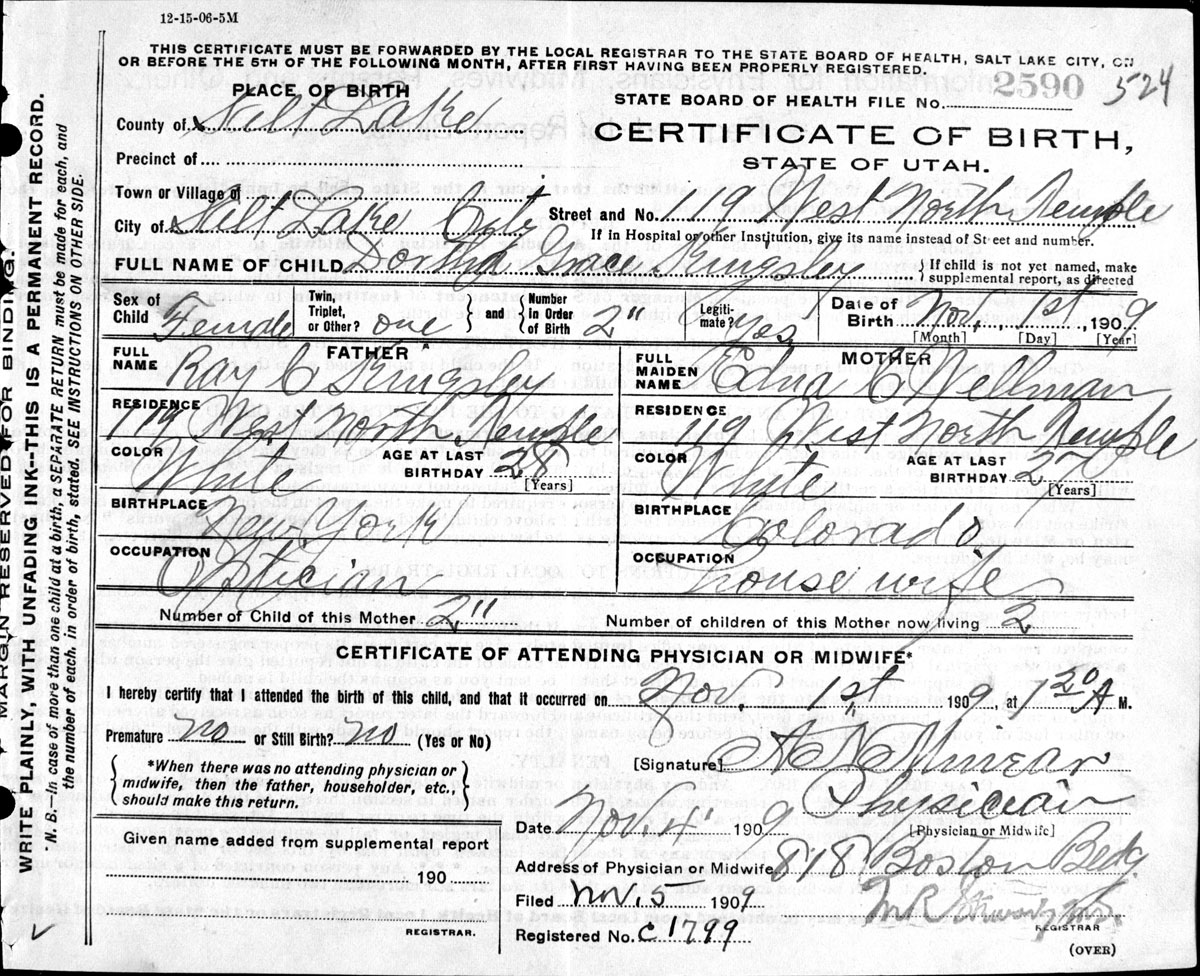 12-15-06-5M
THIS CERTIFICATE MUST BE FORWARDED BY THE LOCAL REGISTRAR TO THE STATE BOARD OF HEALTH, SALT LAKE CITY, ON
OR BEFORE THE 5TH OF THE FOLLOWING MONTH, AFTER FIRST HAVING BEEN PROPERLY REGISTERED.
PLACE OF BIRTH
STATE BOARD OF HEALTH FILE No. 2590 524
County of Salt Lake
CERTIFICATE OF BIRTH,
STATE OF UTAH.
Precinct of
Town or Village of
City of Salt Lake City Street and No. 119 West North Temple
If in Hospital or other Institution, give its name instead of Street and number.
FULL NAME OF CHILD Grace Kingsley } If child is not yet named, make
supplemental report, as directed
Sex of Child Female Twin, Triplet, or Other? one } and { Number in Order of Birth 2" Legiti-mate? Yes Date of Birth Nov, 1st, 1909
[Month] [Day] [Year]
FATHER MOTHER
FULL NAME Ray C Kingsley FULL MAIDEN NAME Edna C Wellman
RESIDENCE 119 West North Temple RESIDENCE 119 West North Temple
COLOR White AGE AT LAST BIRTHDAY 28 [Years] COLOR White AGE AT LAST BIRTHDAY [Years]
BIRTHPLACE New York BIRTHPLACE Colorado
OCCUPATION Optician OCCUPATION house wife
Number of Child of this Mother 2" Number of children of this Mother now living 2
CERTIFICATE OF ATTENDING PHYSICIAN OR MIDWIFE*
I hereby certify that I attended the birth of this child, and that it occurred on Nov. 1st 1909, at 1 20 A M.
Premature No or Still Birth? No (Yes or No)
[Signature]
{ *When there was no attending physician or
midwife, then the father, householder, etc.,
should make this return. }
Physician
[Physician or Midwife]
Date Nov. 4" 1909
Given name added from supplemental report
190
REGISTRAR.
Address of Physician or Midwife 818 Boston Bldg
Filed Nov 5 1909
REGISTRAR
Registered No. C1799
(OVER)
MARGIN RESERVED FOR BINDING.
WRITE PLAINLY, WITH UNFADING INK--THIS IS A PERMANENT RECORD.
*N. B.--In case of more than one child at a birth, a SEPARATE RETURN must be made for each, and
the number of each, in order of birth, stated. SEE INSTRUCTIONS ON OTHER SIDE.